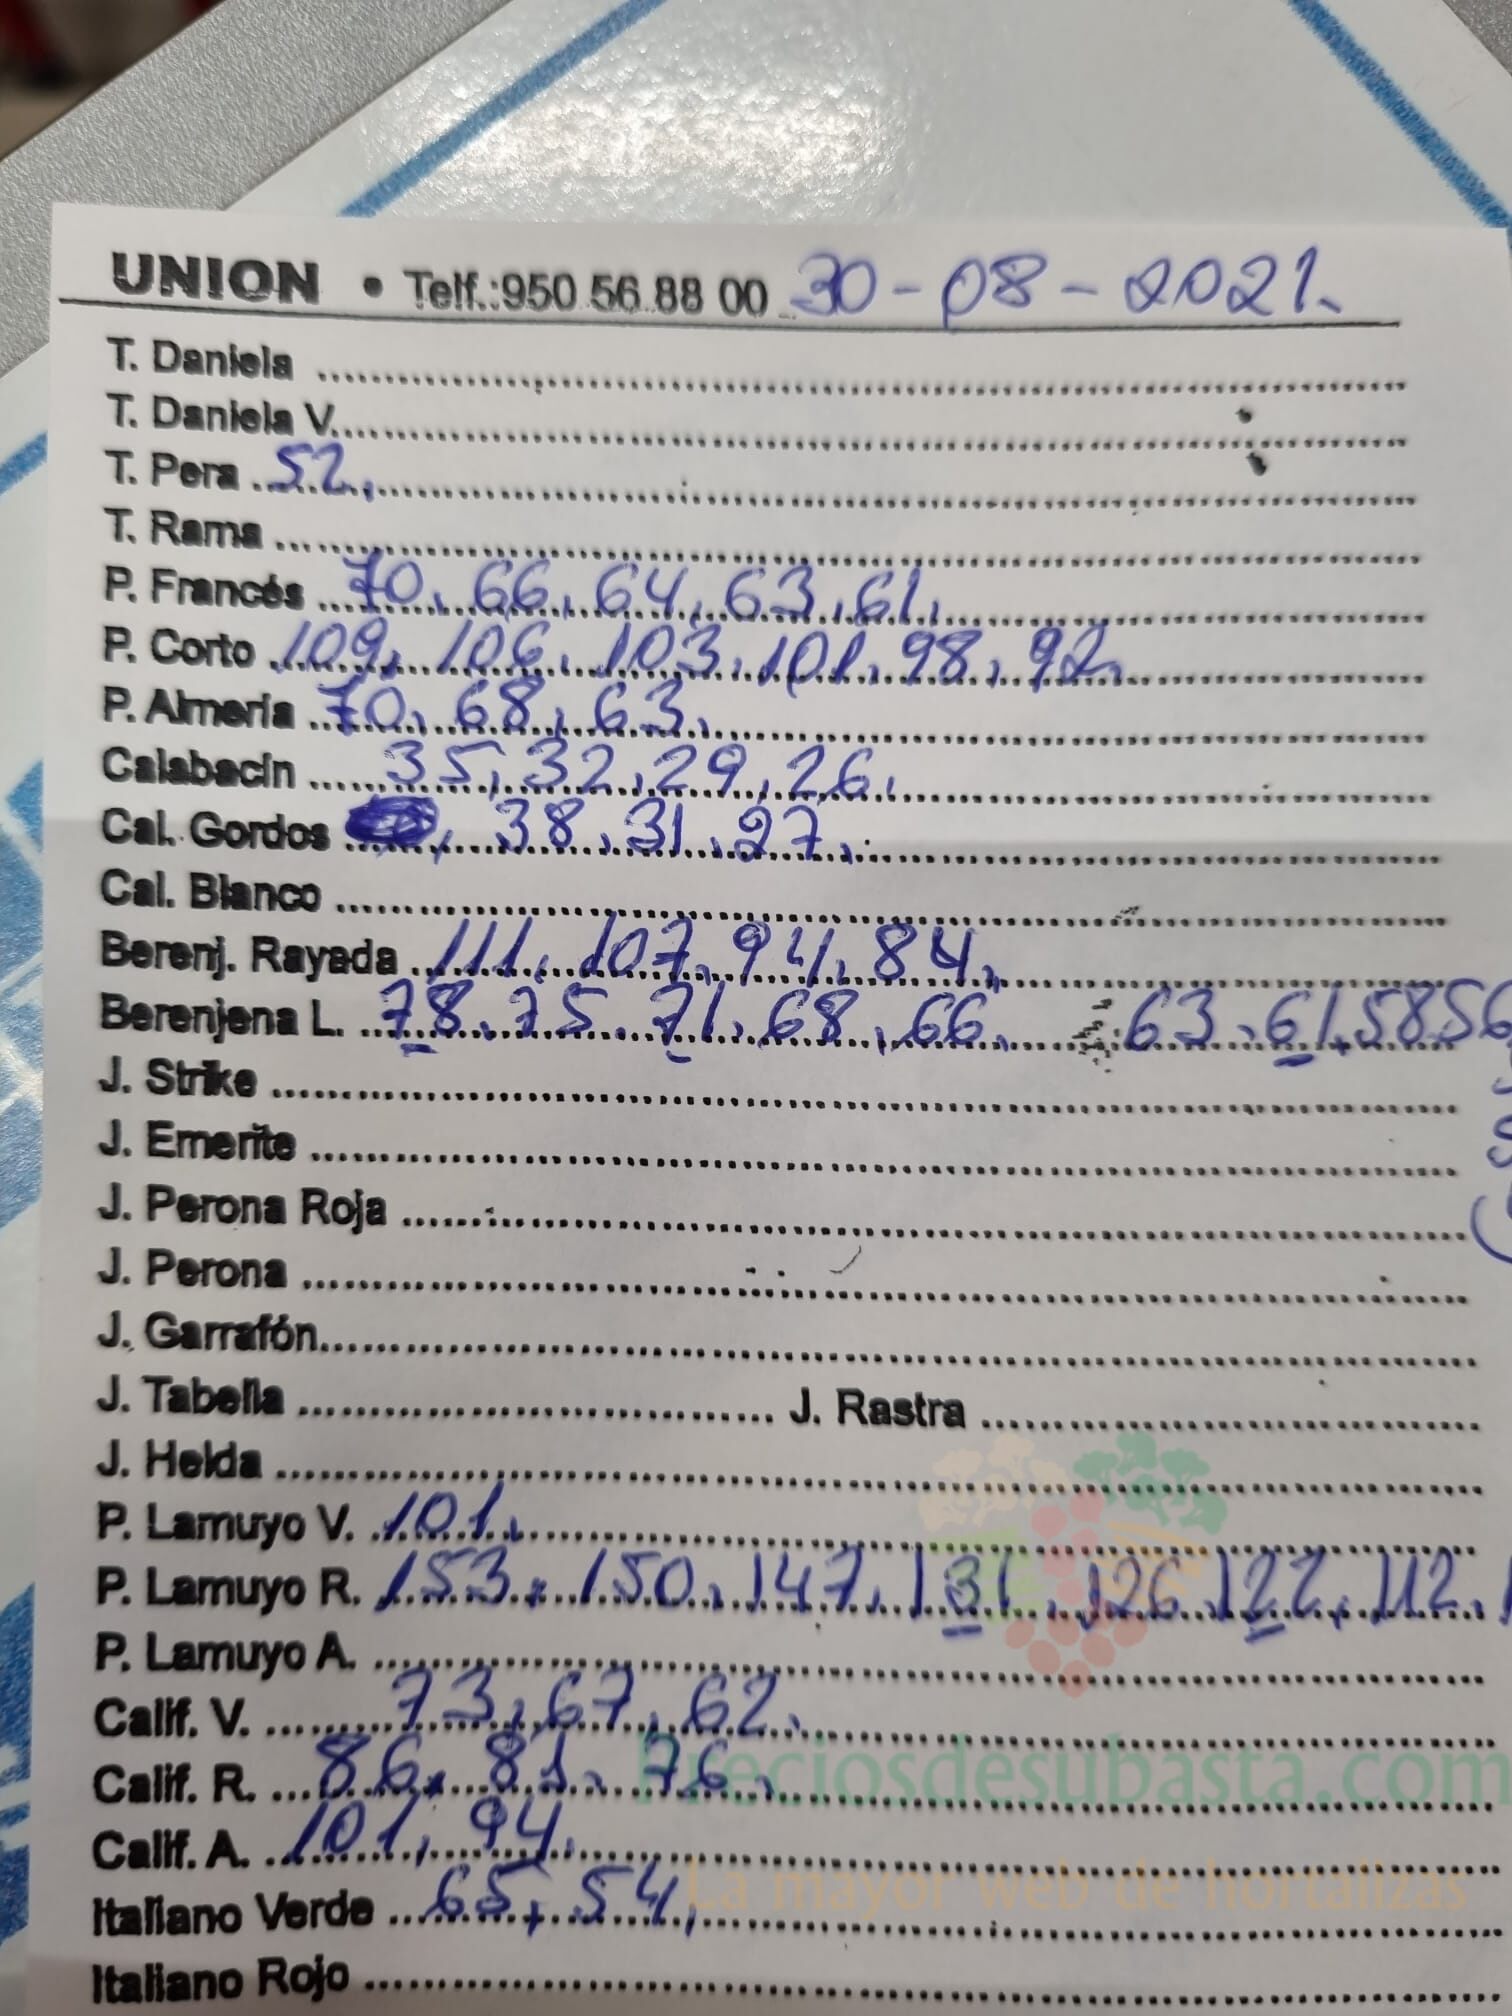 UNION • Telf.:950 56 88 00 30-08-2021.
T. Daniela ........
T. Daniela V. ........
T. Pera 52,
T. Rama ........
P. Francés 70, 66, 64, 63, 61,
P. Corto 109, 106, 103, 101, 98, 92,
P. Almería 70, 68, 63,
Calabacín 35, 32, 29, 26,
Cal. Gordos , 38, 31, 27,
Cal. Blanco ........
Berenj. Rayada 111, 107, 94, 84,
Berenjena L. 78, 75, 71, 68, 66, 63, 61, 58 56
J. Strike ........
J. Emerite ........
J. Perona Roja ........
J. Perona ........
J. Garrafón ........
J. Tabella ........ J. Rastra ........
J. Helda ........
P. Lamuyo V. 101,
P. Lamuyo R. 153, 150, 147, 131, 126, 122, 112,
P. Lamuyo A. ........
Calif. V. 73, 67, 62,
Calif. R. 86, 81, 76,
Preciosdesubasta.com
Calif. A. 101, 94,
Italiano Verde 65, 54,
La mayor web de hortalizas
Italiano Rojo ........